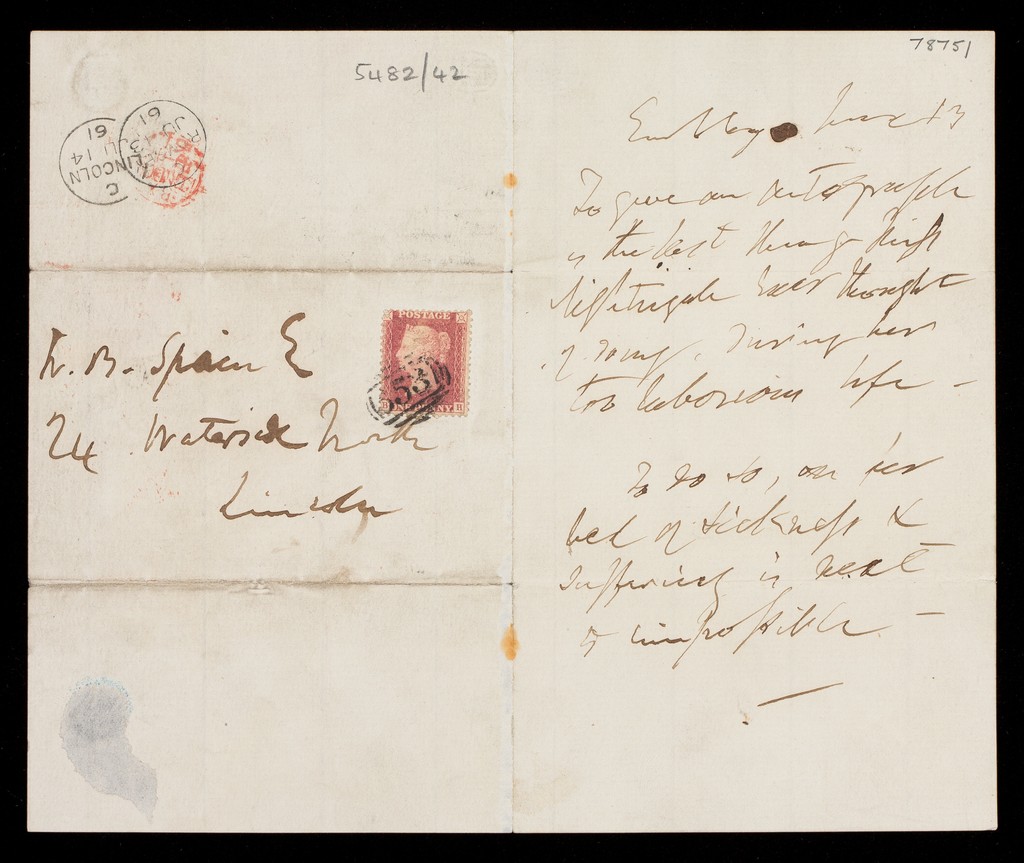 5482/42
61
JU 14
LINCOLN
C
POSTAGE
ONE PENNY
W. B. Spain E
24 Waterside North
Lincoln
78751
Embley June 13
To give an autograph
is the last thing Miss
Nightingale ever thought
of doing, during her
too laborious life –
To do so, on her
bed of sickness &
suffering is next
to impossible. –